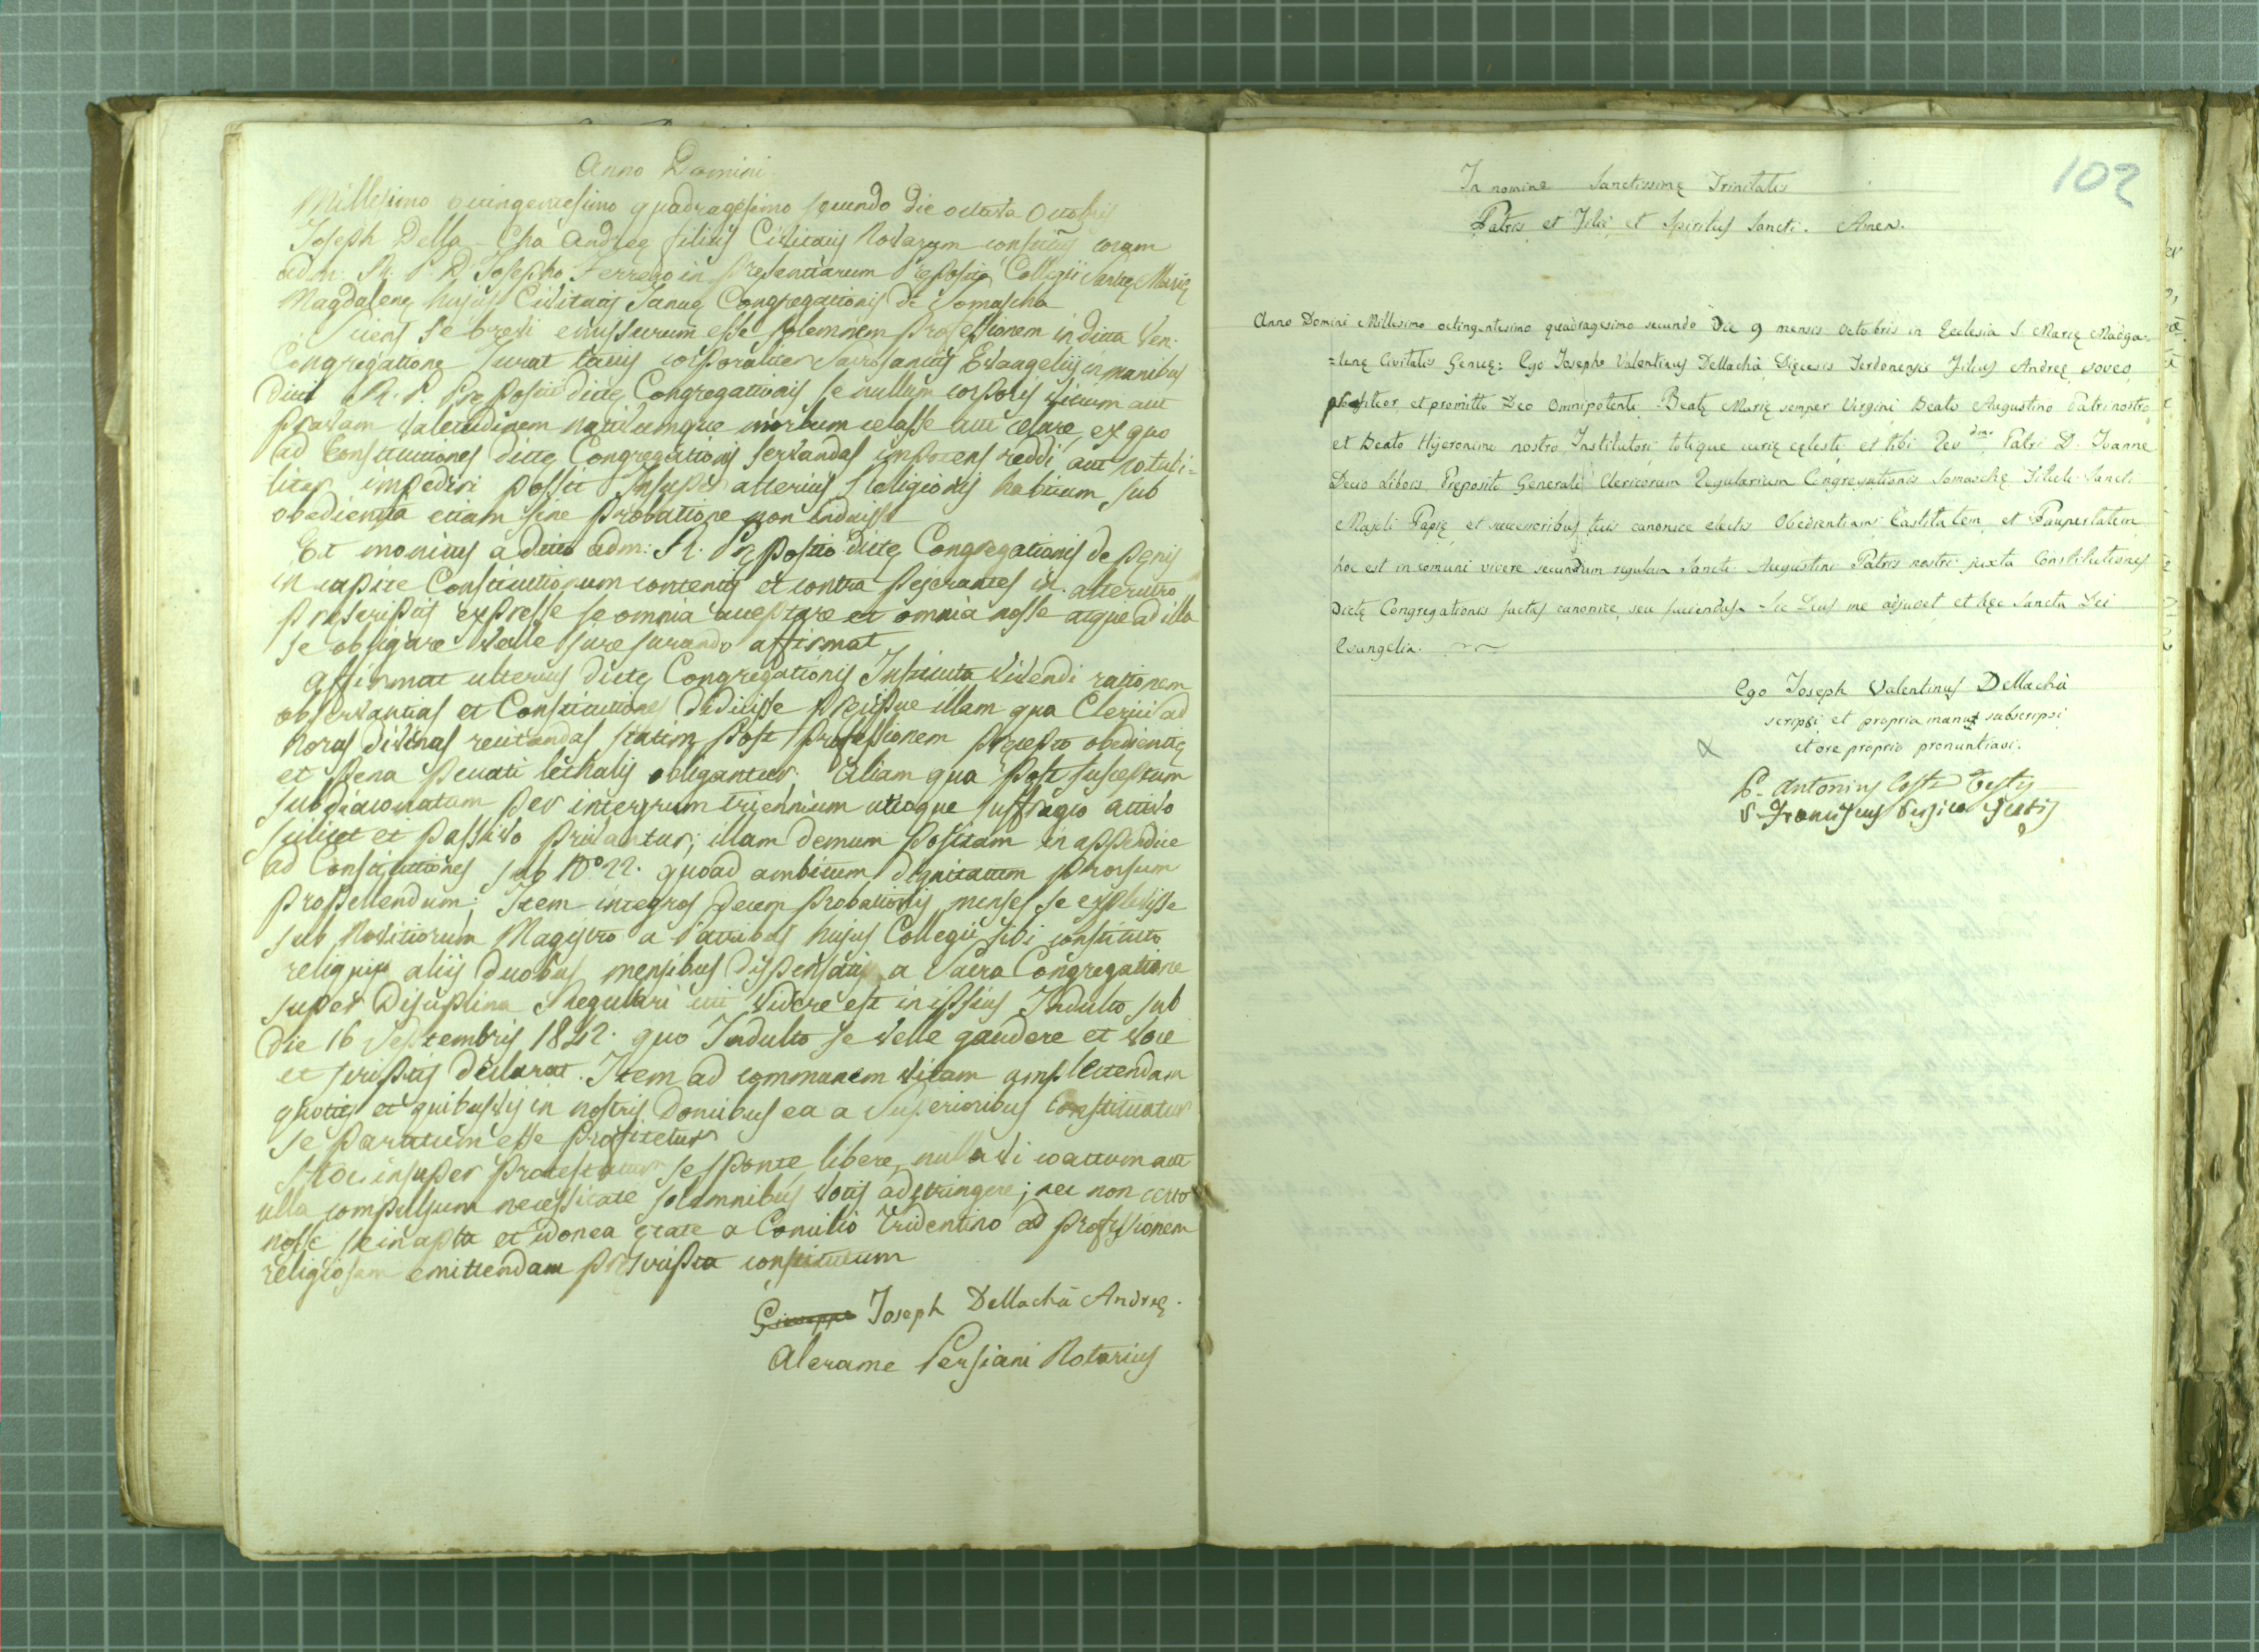 Anno Domini
Millesimo octingentesimo quadragesimo secundo die octava Octobris
Joseph Della-Chà Andreę filius Civitatis Novarum constitutus coram
adm. R. P. D. Josepho Ferrero in presentiarum Pręposito Collegii Sanctę Marię
Magdalenę hujus Civitatis Januę Congregationis de Somascha
Sciens se brevi emissurum esse solemnem professionem in dicta Ven.
Congregatione jurat tactis corporaliter sacrosanctis Evangeliis in manibus
dicti R. P. Prępositi dictę Congregationis se nullum corporis vitium aut
pravam valetudinem nactumque morbum celasse aut celare, ex quo
ad Constitutiones dictę Congregationis servandas impotens reddi aut
liter impediri possit Insuper alterius Religionis habitum, sub
obedientia etiam sine probatione non induisse
Et monitus a dicto adm. R. Pręposito dictę Congregationis de pęnis
in capite Constitutionum contentis et contra pejerantes in alterutro
prescriptis expresse se omnia acceptare et omnia nosse atque ad illa
se obligare velle jurejurando affirmat
Affirmat ulterius dictę Congregationis Instituta vivendi rationem
observantias et Constitutiones didicisse pręcipue illam qua Clerici ad
horas divinas recitandas statim post professionem pręcepto obedientię
et pena peccati lethalis obligantur. Aliam qua post susceptum
subdiaconatum per integrum triennium utroque suffragio activo
scilicet et passivo privantur; illam demum positam in appendice
ad Constitutiones sub No 22. quoad ambitum dignitatum prorsum
propellendum; Item integros decem probationis menses se explevisse
sub Novitiorum Magistro a Patribus hujus Collegii sibi constituto
reliquis aliis duobus mensibus dispensatis a Sacra Congregatione
super Disciplina Regulari uti videre est in ipsius Indulto sub
die 16 Septembris 1842. quo Indulto se velle gaudere et voce
et scriptis declarat. Item ad communem vitam amplectendam
quoties et quibusvis in nostris Domibus ea a Superioribus constituatur
se paratum esse profitetur
Hoc insuper protestatum se sponte, libere, nulla vi coactum aut
ulla compulsum necessitate solemnibus votis adstringere; nec non certo
nosse se in apta et idonea ętate a Concilio Tridentino ad professionem
religiosam emittendam pręscripta constitutum
Giuseppe Joseph Dellachà Andreę.
Alerame Persiani Notarius
102
In nomine Sanctissimę Trinitatis
Patris et Filii et Spiritus Sancti. Amen.
Anno Domini Millesimo octingentesimo quadragesimo secundo Die 9 mensis Octobris in Ecclesia S. Marię Magda-
=lenę Civitatis Genuę: Ego Joseph Valentinus Dellachà Dięcesis Terdonensis Filius Andreę voveo
profiteor, et promitto Deo Omnipotenti Beatę Marię semper Virgini Beato Augustino Patri nostro
et Beato Hijeronimo nostro Institutori totique curię cęlesti et tibi Rev.dmo Patri D. Joanne
Decio Libois Pręposito Generali Clericorum Regularium Congregationis Somaschę Tituli Sancti
Majoli Papię et successoribus tuis canonice electis Obedientiam Castitatem et Paupertatem
hoc est in comuni vivere secundum regulam Sancti Augustini Patris nostri juxta Constitutiones
Dictę Congregationis factas canonice, seu faciendas. Sic Deus me adjuvet et hęc Sancta Dei
Evangelia.
Ego Joseph Valentinus Dellachà
scripsi et propria manu subscripsi
et ore proprio pronuntiavi.
P. Antonius Costa Testis
P. Franciscus Persico Testis